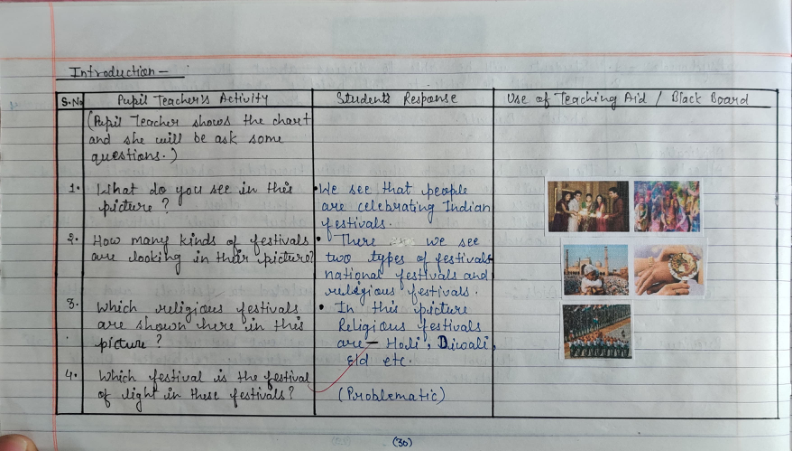 Introduction -
S.No Pupil Teacher's Activity Students Response Use of Teaching Aid / Black Board
(Pupil Teacher shows the chart
and she will be ask some
questions.)
1. What do you see in this
picture ?
• We see that people
are celebrating Indian
festivals.
2. How many kinds of festivals
are looking in their picture?
• There we see
two types of festivals
national festivals and
religious festivals.
3. Which religious festivals
are shown here in this
picture ?
• In this picture
Religious festivals
are - Holi, Diwali,
eid etc.
4. Which festival is the festival
of light in these festivals?
(Problematic)
(30)